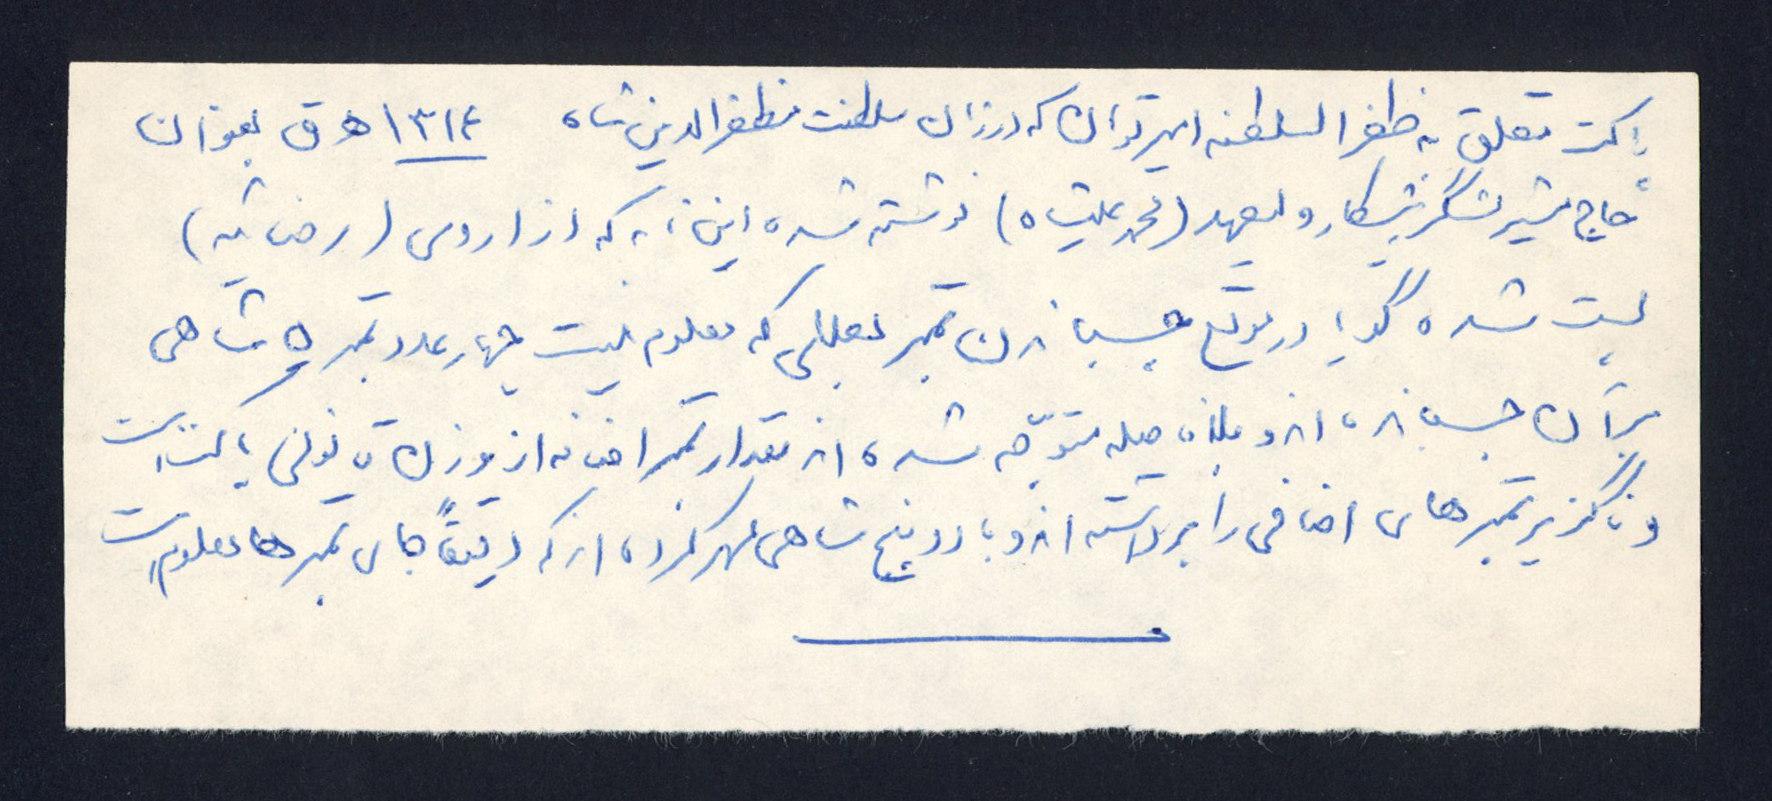 پاکت متعلق به ظفرالسلطنه امیر تومان که در زمان سلطنت مظفرالدین شاه ۱۳۱۴ ه ق بعنوان
حاج مشیر لشگر پیشکار ولیعهد (محمد علیشاه) نوشته شده این نامه که از ارومی (رضائیه)
پست شده گویا در موقع چسباندن تمبر بعللی که معلوم نیست چهار عدد تمبر ۵ شاهی
بر آن چسبانده اند و بلافاصله متوجه شده اند مقدار تمبر اضافه از وزن قانونی پاکت است
و ناگزیر تمبرهای اضافی را برداشته اند و با دو پنج شاهی مهر کرده اند که دقیقاً جای تمبرها معلوم است